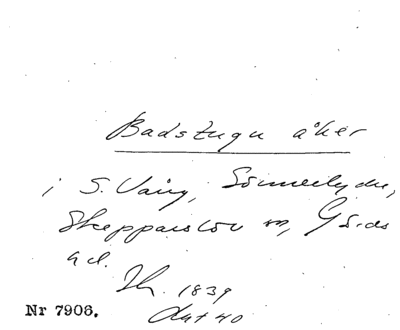 Badstugu åker
i S. Vång, Sönnerlyde,
Skepparslöv sn, Gärds
hd.
1839
Nr 7908.